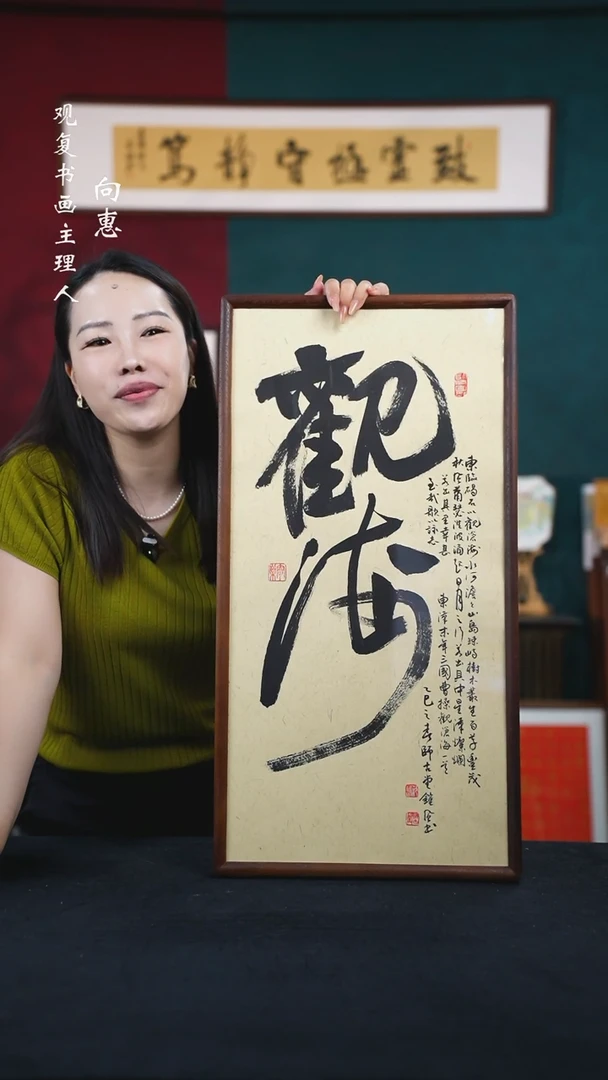 观复书画主理人
向惠
致虛極守靜篤
觀海
東臨碣石以觀滄海水何澹々山島竦峙樹木叢生百草豐茂
秋風蕭瑟洪波涌起日月之行若出其中星漢燦爛
若出其里幸甚
至哉歌以詠志
東漢末年三國曹操觀滄海一
乙巳之春師古堂